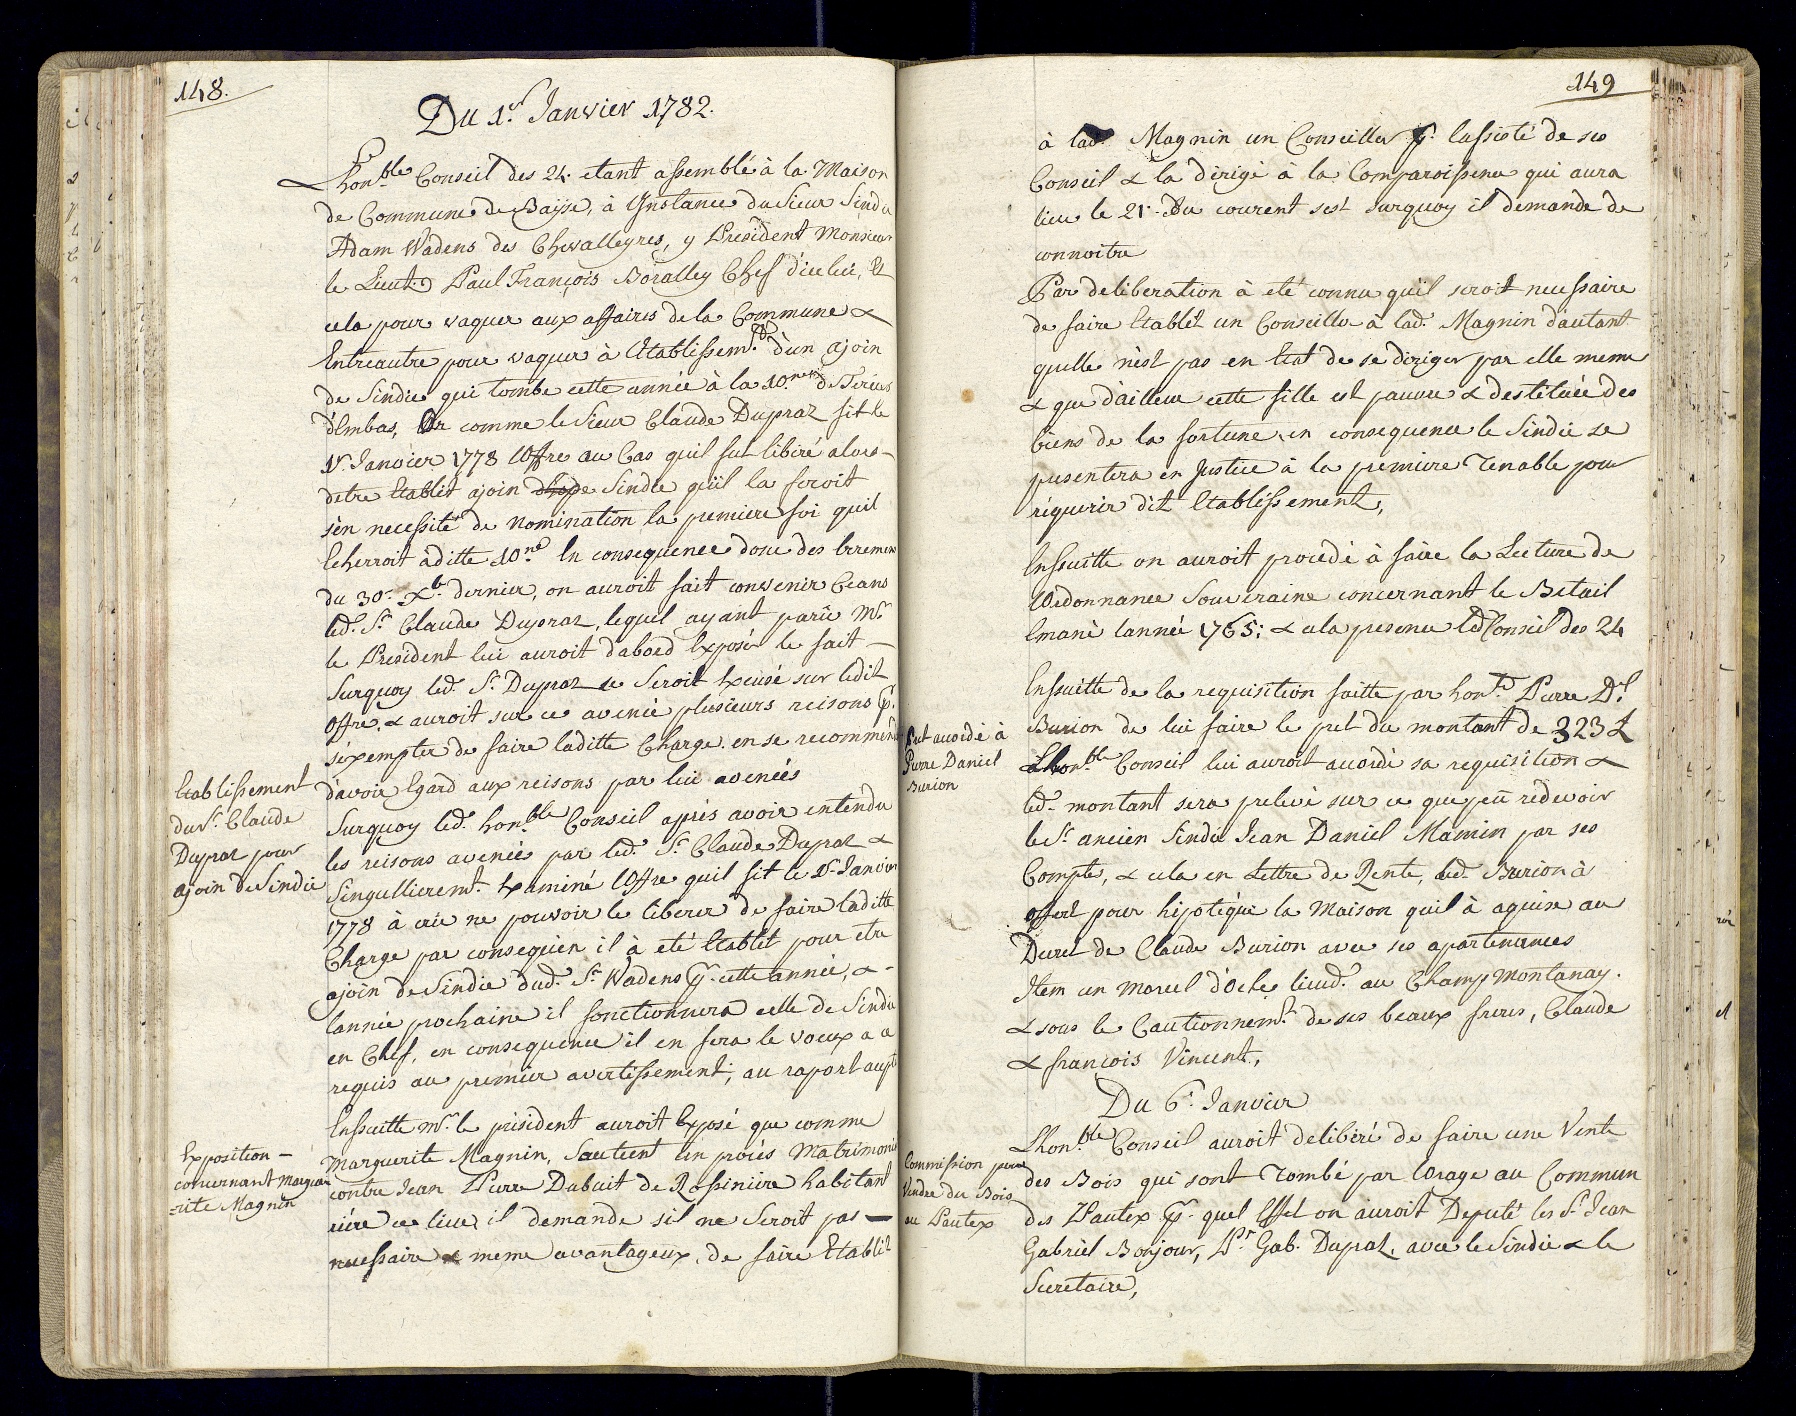 148.
Du 1.r Janvier 1782.
Lhon.ble Conseil des 24. etant assemblé à la Maison
de Commune de Baÿse, à Instance du Sieur Sindic
Adam Wadens des Chevalleyres, y President Monsieur
le Lieut. Paul François Boralley Chef d'icelui, Et
cela pour vaquer aux affaires de la Commune &
Entreautre pour vaquer à l'Etablissem.t d'un ajoin
de Sindic qui tombe cette année à la 10.ne de Terieux
d'Embas, Or comme le Sieur Claude Dupraz fit le
1.r Janvier 1778 l'Offre au Cas quil fut libéré alors
detre Etablit ajoin de Sindic qu'il la feroit
s'en necessité de nomination la premiere foi quil
Echerroit à ditte 10.ne En consequence donc des
du 30.e Xb.e dernier, on auroit fait convenir Ceans
led. S.r Claude Dupraz, lequel ayant parü M.r
le President lui auroit d'abord Exposé le fait
Surquoy led. S.r Dupraz se Seroit Excusé sur ledit
Offre, & auroit sur ce avencé plusieurs reisons p.r
s'exempter de faire laditte Charge en se recommend.t
d'avoir Egard aux reisons par lui avencées
Etablissement
du S.r Claude
Dupraz pour
ajoin de Sindic
Surquoy led. hon.ble Conseil aprés avoir entendu
les reisons avencée par led. S.r Claude Dupraz &
Singullierem.t Examiné l'Offre quil fit le 1.r Janvier
1778 à crü ne pouvoir le liberer de faire laditte
Charge par consequien il à eté Etablit pour etre
ajoin de Sindic dud. S.r Wadens p.r cette année, &
lannée prochaine il fonctionnera celle de Sindic
en Chef, en consequence il en fera le voeux a ce
requis au premier avertissement, au raport
Exposition
concernant Margue
=rite Magnin
Ensuitte m.r le president auroit Exposé que comme
Marguerite Magnin, Soutient un procés Matrimonial
contre Jean Pierre Dubuit de Rossiniere habitant
riére ce lieu, il demande sil ne Seroit pas
necessaire & meme avantageux, de faire Etablit
149
à lad. Magnin un Conseiller p.r lassisté de ses
Conseil & la dirigé à la Comparoissence qui aura
lieu le 21.e du courent sest surquoy il demande de
connoitre
Par deliberation à eté connu qu'il seroit necessaire
de faire Etablit un Conseiller à lad. Magnin d'autant
quelle n'est pas en Etat de se diriger par elle meme
& que d'ailleur cette fille est pauvre & destituée des
biens de la fortune, en consequence le Sindic se
presentera en Justice à la premiere Tenable pour
réquerir dit Etablissement,
Ensuitte on auroit procedé à faire la Lecture de
l'Ordonnance Souveraine concernant le Betail
Emané lannée 1765; & a la presence led Conseil des 24
Pret accordé à
Pierre Daniel
Burion
Ensuitte de la requisition faitte par hon.te Pierre D.l
Burion de lui faire le pret du montant de 323 £
Lhon.ble Conseil lui auroit accordé sa requisition &
led. montant sera prelevé sur ce que peü redevoir
le S.r ancien Sindic Jean Daniel Mamin par ses
Compte, & cela en Lettre de Rente, led. Burion à
offert pour hipotéque la Maison quil à aquise au
Decret de Claude Burion avec ses apartenences
Item un morcel d'Oche lieud. au Champ Montanay.
& sous le Cautionnem.t de ses beaux freres, Claude
& françois Vincent,
Du 6.e Janvier
Commission pour
Vendre du Bois
au Pautex
Lhon.ble Conseil auroit deliberé de faire une Vente
des Bois qui sont Tombé par l'Orage au Commun
des Pautex p.r quel Effet on auroit Deputé les S.r Jean
Gabriel Bonjour, P.r Gab. Dupraz, avec le Sindic & le
Secretaire,